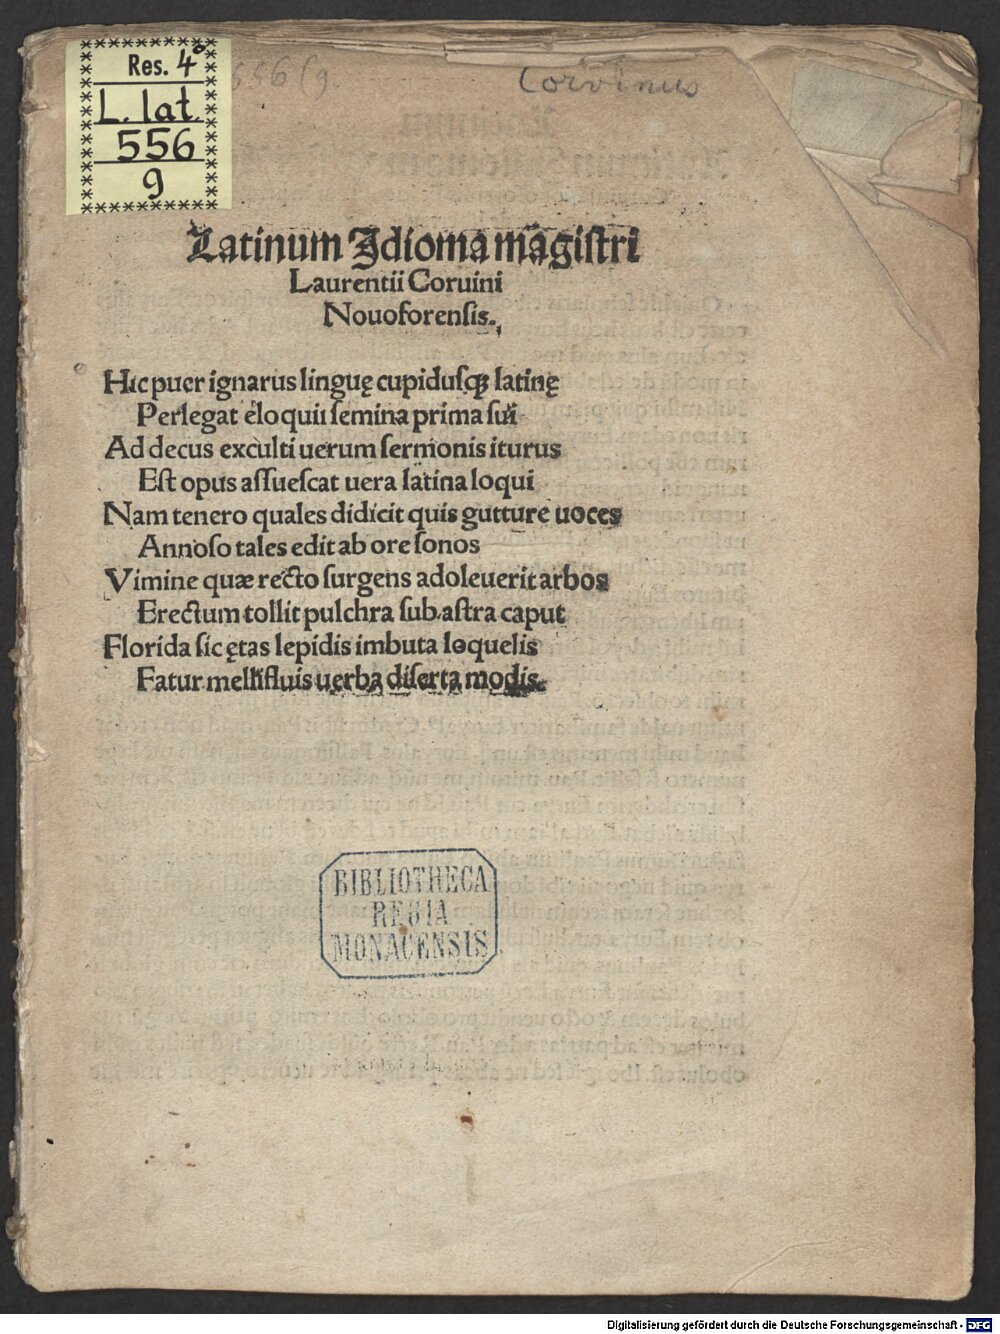 Res. 4°
L. lat.
556
9
556(9.
Corvinus
Latinum Idioma magiſtri
Laurentii Coruini
Nouoforenſis.
Hic puer ignarus linguę cupiduſqꝫ latinę
Perlegat eloquii ſemina prima ſui
Ad decus exculti uerum ſermonis iturus
Eſt opus aſſueſcat uera latina loqui
Nam tenero quales didicit quis gutture uoces
Annoſo tales edit ab ore ſonos
Vimine quæ recto ſurgens adoleuerit arbos
Erectum tollit pulchra ſub aſtra caput
Florida ſic ętas lepidis imbuta loquelis
Fatur mellifluis uerba diſerta modis.
BIBLIOTHECA
REGIA
MONACENSIS
Digitalisierung gefördert durch die Deutsche Forschungsgemeinschaft - DFG